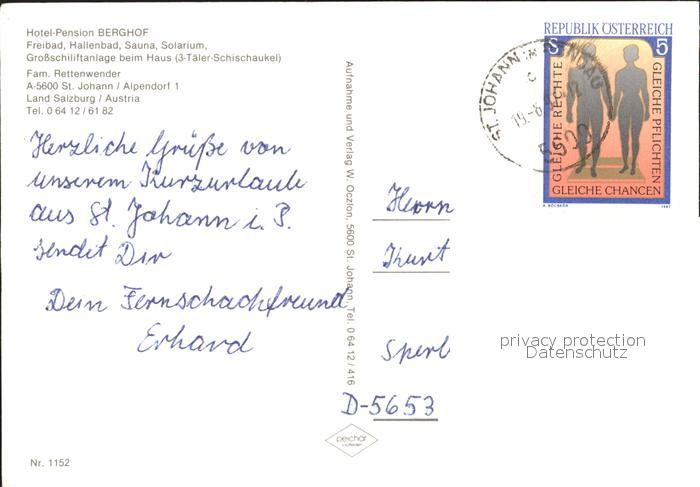 Hotel-Pension BERGHOF
Freibad, Hallenbad, Sauna, Solarium,
Großschiliftanlage beim Haus (3-Täler-Schischaukel)
Fam. Rettenwender
A-5600 St. Johann / Alpendorf 1
Land Salzburg / Austria
Tel. 0 64 12 / 61 82
Herzliche Grüße von
unserem Kurzurlaub
aus St. Johann i. P.
sendet Dir
Dein Fernschachfreund
Erhard
Nr. 1152
Aufnahme und Verlag W. Oczlon, 5600 St. Johann, Tel. 0 64 12 / 416
REPUBLIK ÖSTERREICH
S 5
GLEICHE RECHTE
GLEICHE PFLICHTEN
GLEICHE CHANCEN
1987
ST. JOHANN IM PONGAU
c
5600
Herrn
Kurt
Sperl
D-5653
privacy protection
Datenschutz